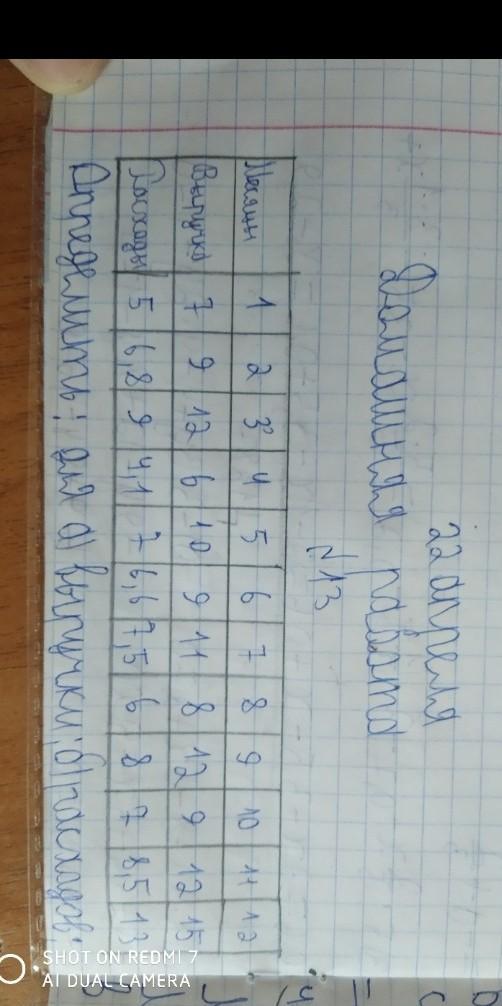 22 апреля
Домашняя работа
№13
Месяцы 1 2 3 4 5 6 7 8 9 10 11 12
Выручка 7 9 12 6 10 9 11 8 12 9 12 15
Расходы 5 6,8 9 4,1 7 6,6 7,5 6 8 7 8,5 13
Определить: для а) выручки; б) расходов:
SHOT ON REDMI 7
AI DUAL CAMERA